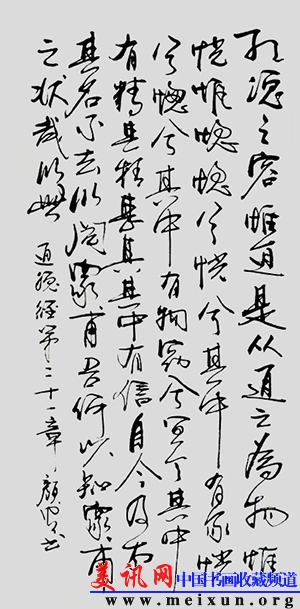 孔德之容惟道是从道之為物惟
恍惟惚惚兮恍兮其中有象恍
兮惚兮其中有物窈兮冥兮其中
有精其精甚真其中有信自今及古
其名不去以阅眾甫吾何以知眾甫
之状哉以此 道德经第二十一章 书
美讯网 中国书画收藏频道
www.meixun.org